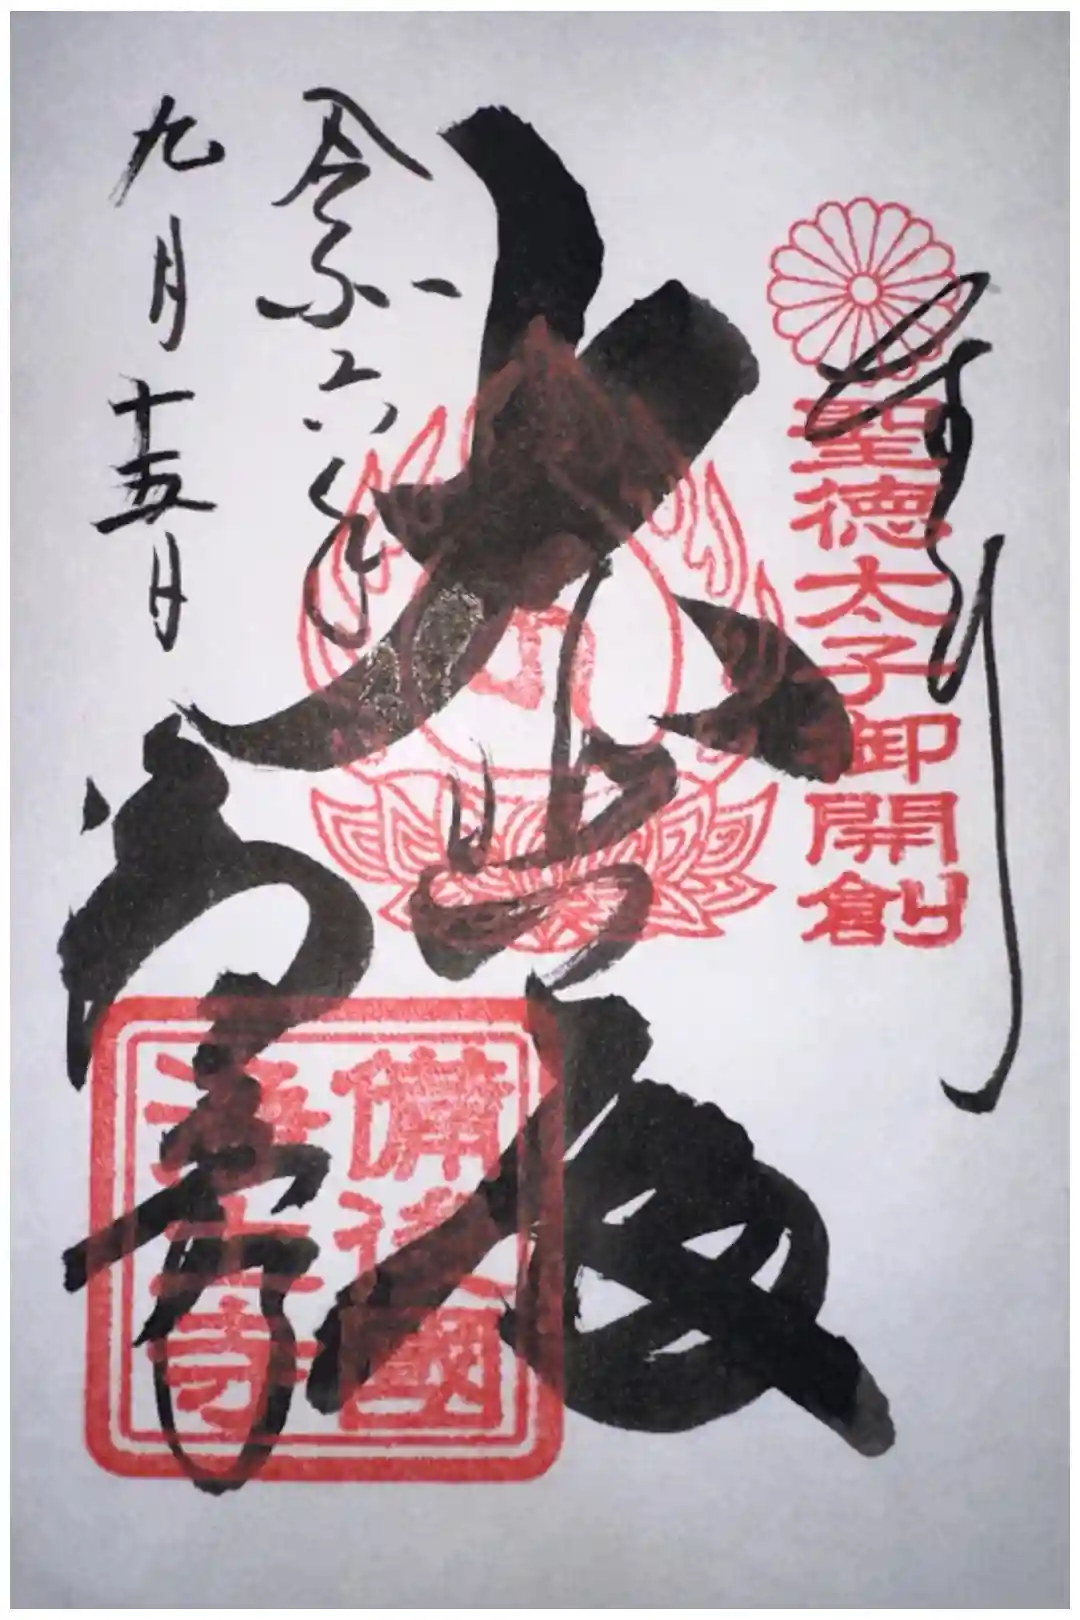 奉拝
聖徳太子御開創
大悲殿
令和六年
九月十五日
備後國
浄土寺